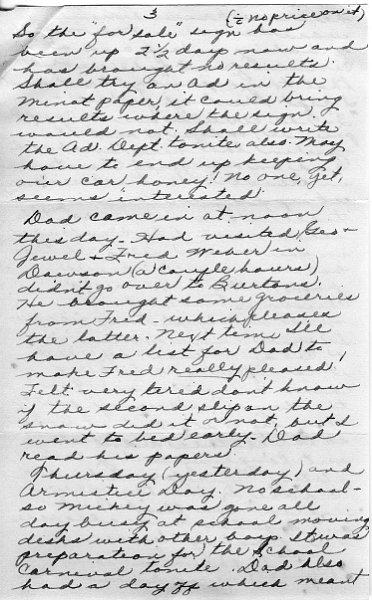 3
(& no price on it)
So the "for sale" sign has
been up 2½ day now and
has brought no results.
Shall try an ad in the
Minot paper, it could bring
results where the sign
would not. Shall write
the Ad. Dept. tonite also. May
have to end up keeping
our car honey! No one, yet,
seems interested.
Dad came in at noon
this day - Had visited Geo +
Jewel + Fred Weber in
Dawson (a couple hours)
didn't go over to Burtons.
He brought some groceries
from Fred - which pleases
the latter. Next time I'll
have a list for Dad to
make Fred really pleased!
Felt very tired don't know
if the second slip on the
snow did it or not, but I
went to bed early - Dad
read his papers.
Thursday (yesterday) and
Armistice Day. No school -
so Mickey was gone all
day busy at school moving
desks with other boys. It was
preparation for the School
Carnival tonite. Dad also
had a day off which meant